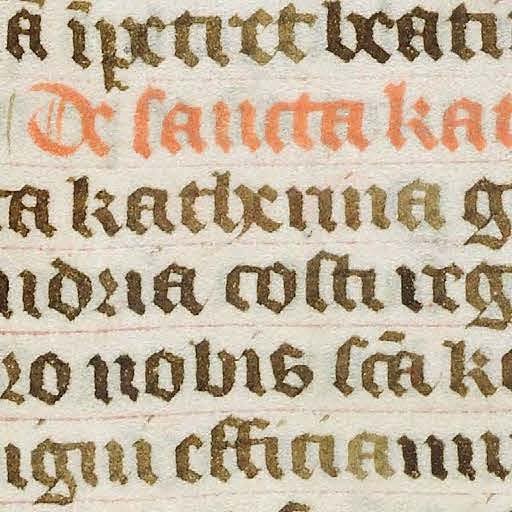 ā īpetret beati
De sancta kat
ta katherina g
ndria costi reg
ro nobis scā k
igni efficiam